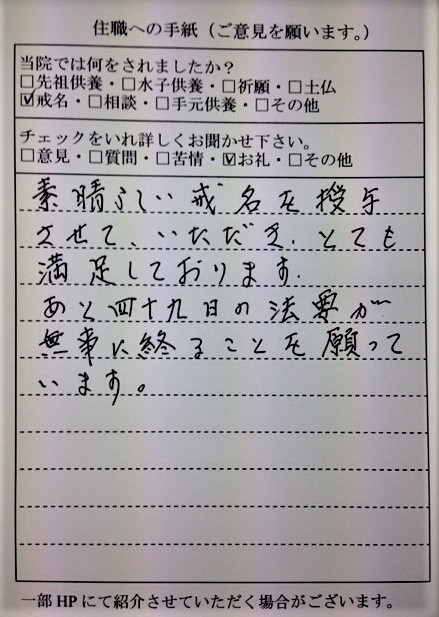 住職への手紙（ご意見を願います。）
当院では何をされましたか？
□先祖供養・□水子供養・□祈願・□土仏
☑戒名・□相談・□手元供養・□その他
チェックをいれ詳しくお聞かせ下さい。
□意見・□質問・□苦情・☑お礼・□その他
素晴らしい戒名を授与
させて、いただき、とても
満足しております。
あと四十九日の法要が
無事に終ることを願って
います。
一部HPにて紹介させていただく場合がございます。